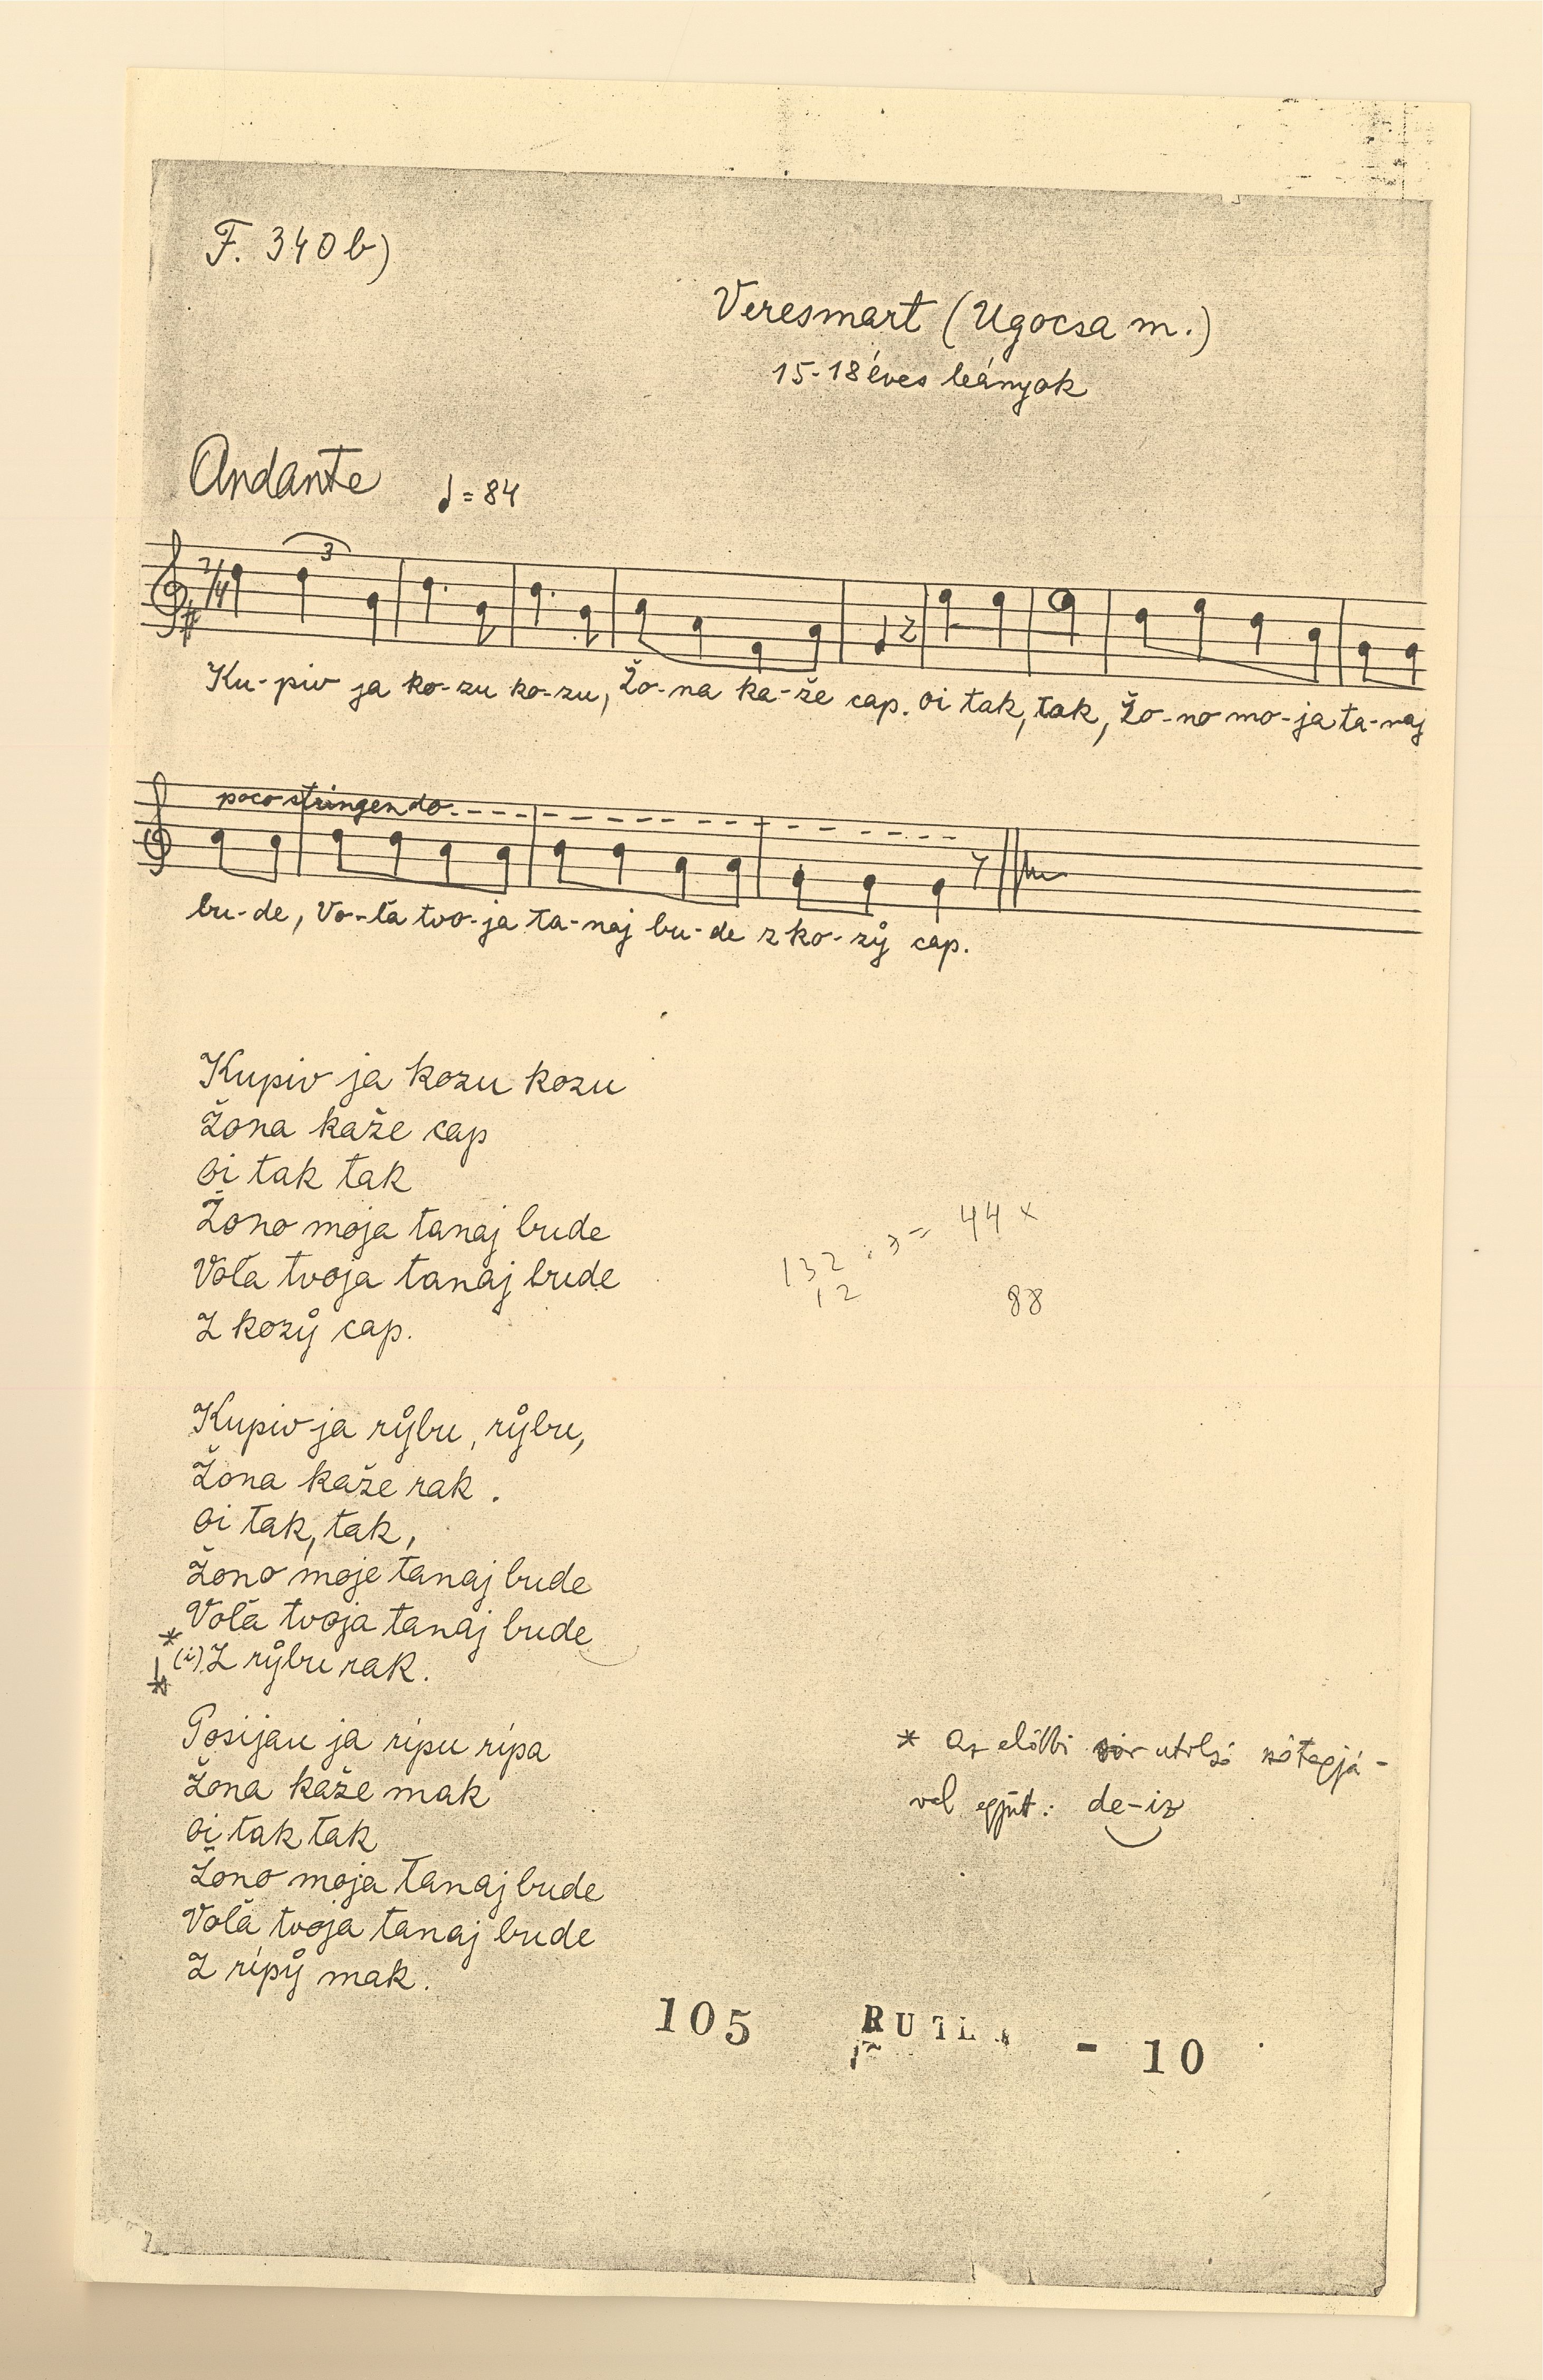 F. 340 b)
Veresmart (Ugocsa m.)
15-18 éves leányok
Andante ♩=84
3
2/4
Ku-piv ja ko-zu ko-zu, Žo-na ka-že cap. oi tak, tak, Žo-no mo-ja ta-naj
poco stringendo
bu-de, Vo-ľa tvo-ja ta-naj bu-de z ko-zẙ cap.
Kupiv ja kozu kozu
Žona kaže cap
oi tak tak
Žono moja tanaj bude
Voľa tvoja tanaj bude
Z kozẙ cap.
132 : 3 = 44 x
12 88
Kupiv ja rẙbu, rẙbu,
Žona kaže rak.
oi tak, tak,
Žono moje tanaj bude
Voľa tvoja tanaj bude
* (i) Z rẙbu rak.
*
Posijau ja ripu ripa
Žona kaže mak
oi tak tak
Žono moja tanaj bude
Voľa tvoja tanaj bude
Z ripẙ mak.
* az előbbi sor utolsó szótagjá-
val együt: de-iz
105 - 10